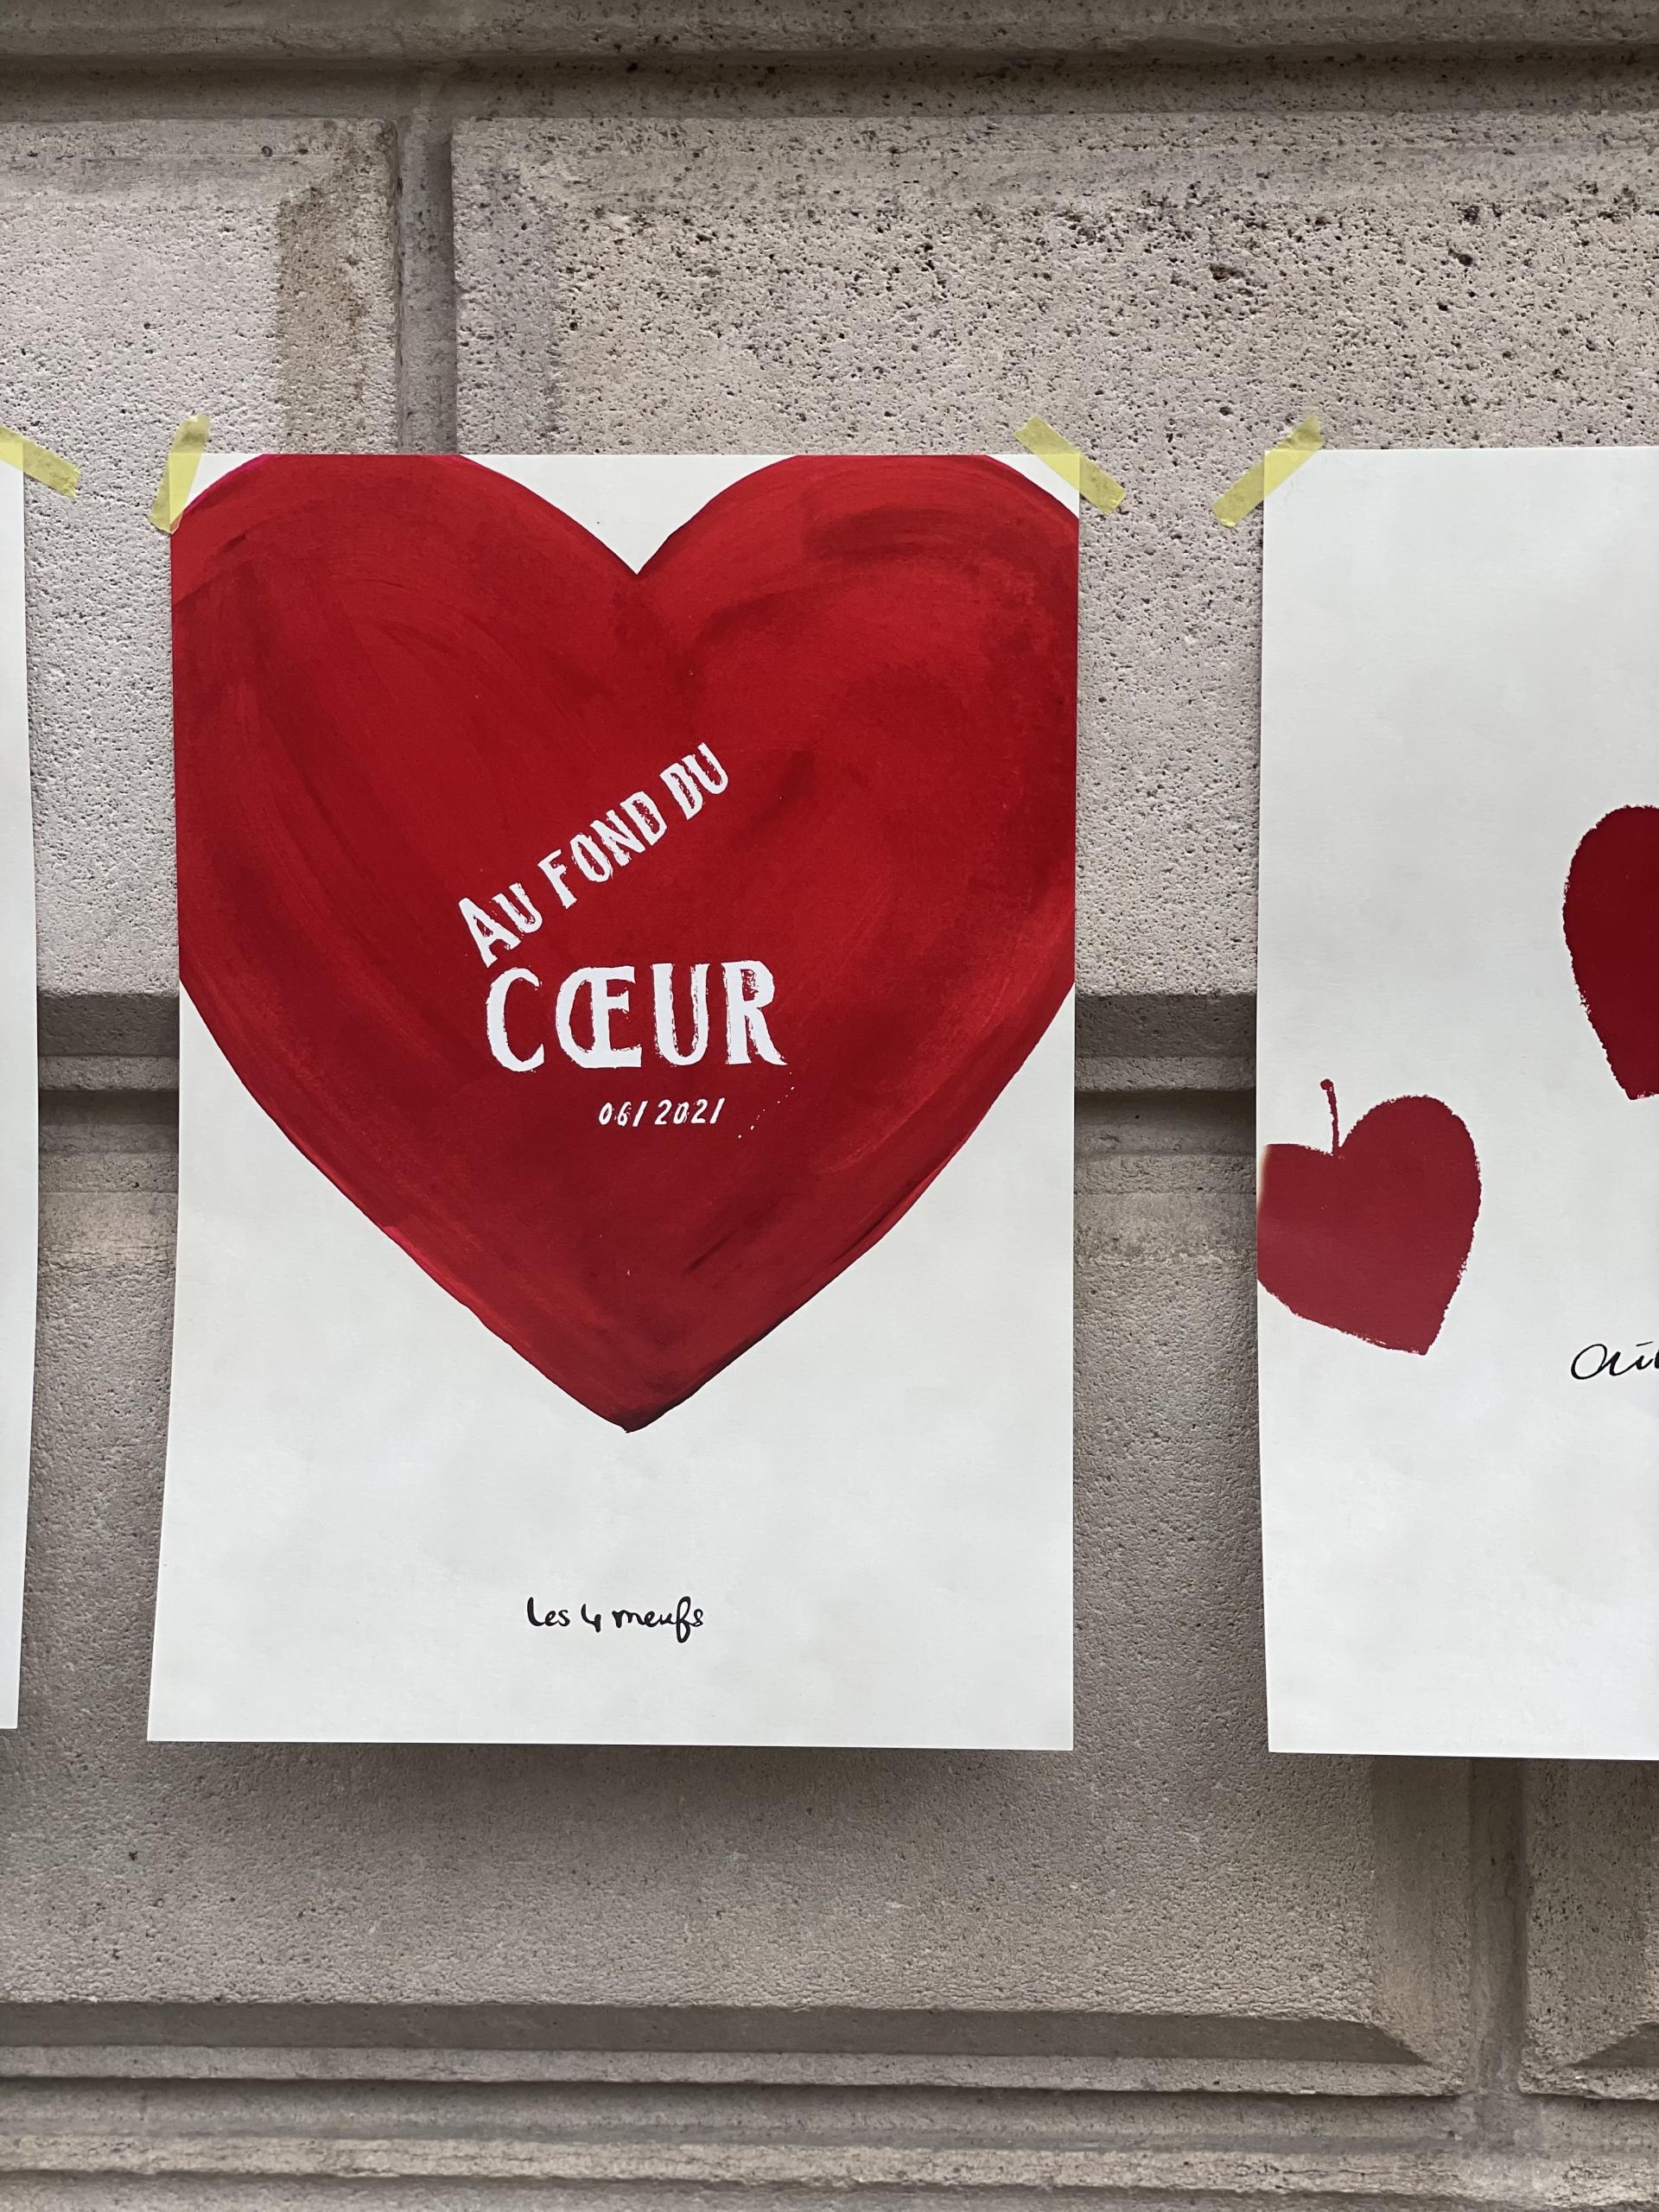 AU FOND DU
CŒUR
06/2021
les 4 meufs